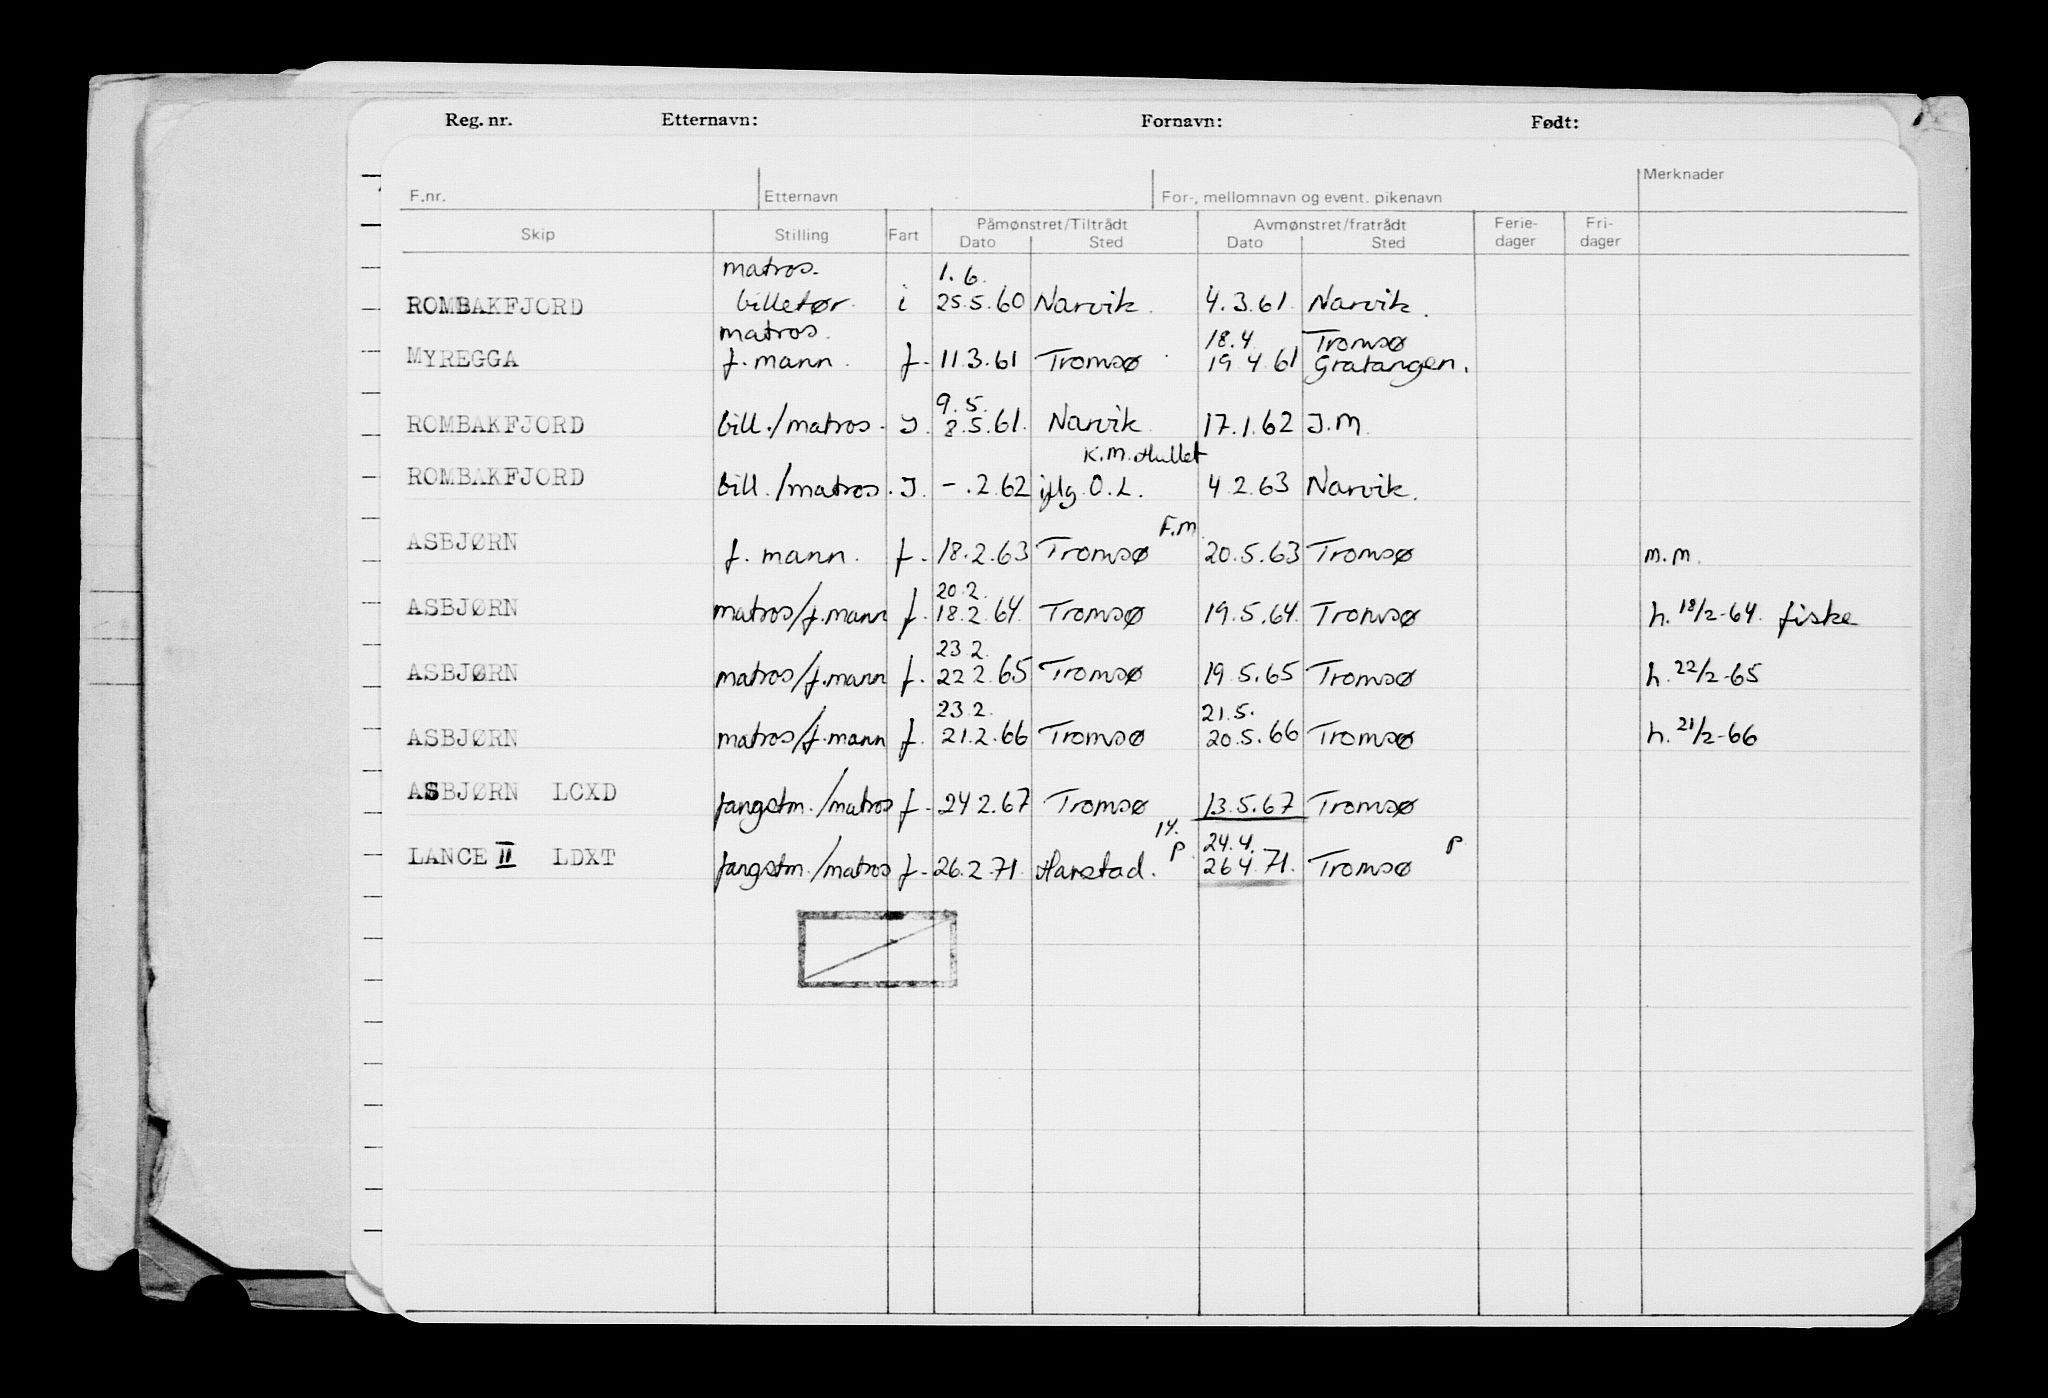 Reg. nr. Etternavn: Fornavn: Født:
Merknader
F.nr. Etternavn For-, mellomnavn og event. pikenavn
Skip Stilling Fart Påmønstret/Tiltrådt Avmønstret/fratrådt Ferie-dager Fri-dager
Dato Sted Dato Sted
matros. 1.6.
ROMBAKFJORD billetør. i 25.5.60 Narvik. 4.3.61. Narvik.
matros. 18.4. Tromsø
MYREGGA f. mann. f. 11.3.61 Tromsø 19.4.61 Gratangen.
9.5.
ROMBAKFJORD bill./matros. I. 8.5.61. Narvik. 17.1.62 I.M.
K.M. Hullet
ROMBAKFJORD bill./matros. I. -.2.62 iflg. O.L. 4.2.63 Narvik.
F.M.
ASBJØRN f. mann. f. 18.2.63 Tromsø 20.5.63 Tromsø m.m.
20.2.
ASBJØRN matros/f.mann f. 18.2.64. Tromsø 19.5.64. Tromsø h. 18/2-64. fiske
23.2.
ASBJØRN matros/f.mann f. 22.2.65 Tromsø 19.5.65 Tromsø h. 22/2-65
23.2. 21.5.
ASBJØRN matros/f.mann f. 21.2.66 Tromsø 20.5.66 Tromsø h. 21/2-66
ASBJØRN LCXD fangstm./matros f. 24.2.67 Tromsø 13.5.67 Tromsø
14. 24.4.
LANCE II LDXT fangstm./matros f. 26.2.71. Harstad. P. 26.4.71. Tromsø P